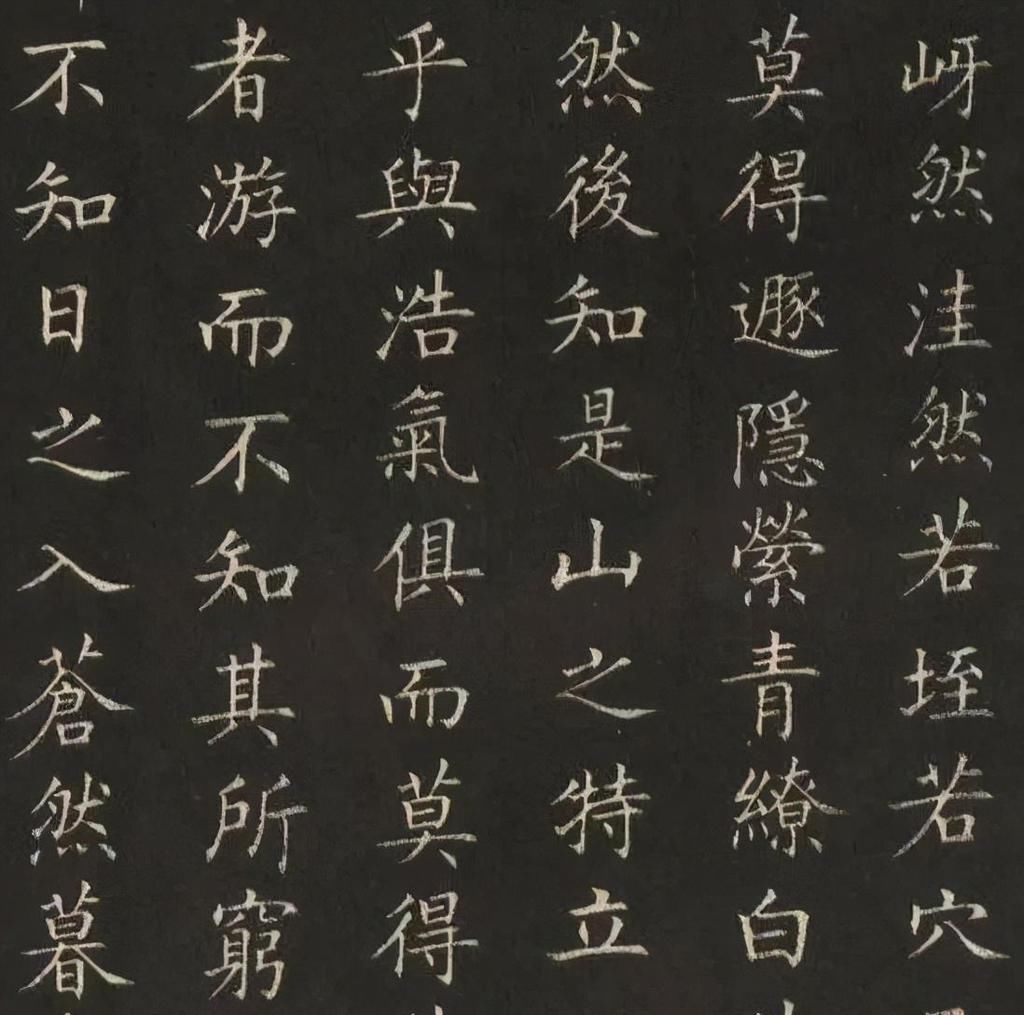 岈然洼然若垤若穴
莫得遯隱縈青繚白
然後知是山之特立
乎與浩氣俱而莫得
者游而不知其所窮
不知日之入蒼然暮